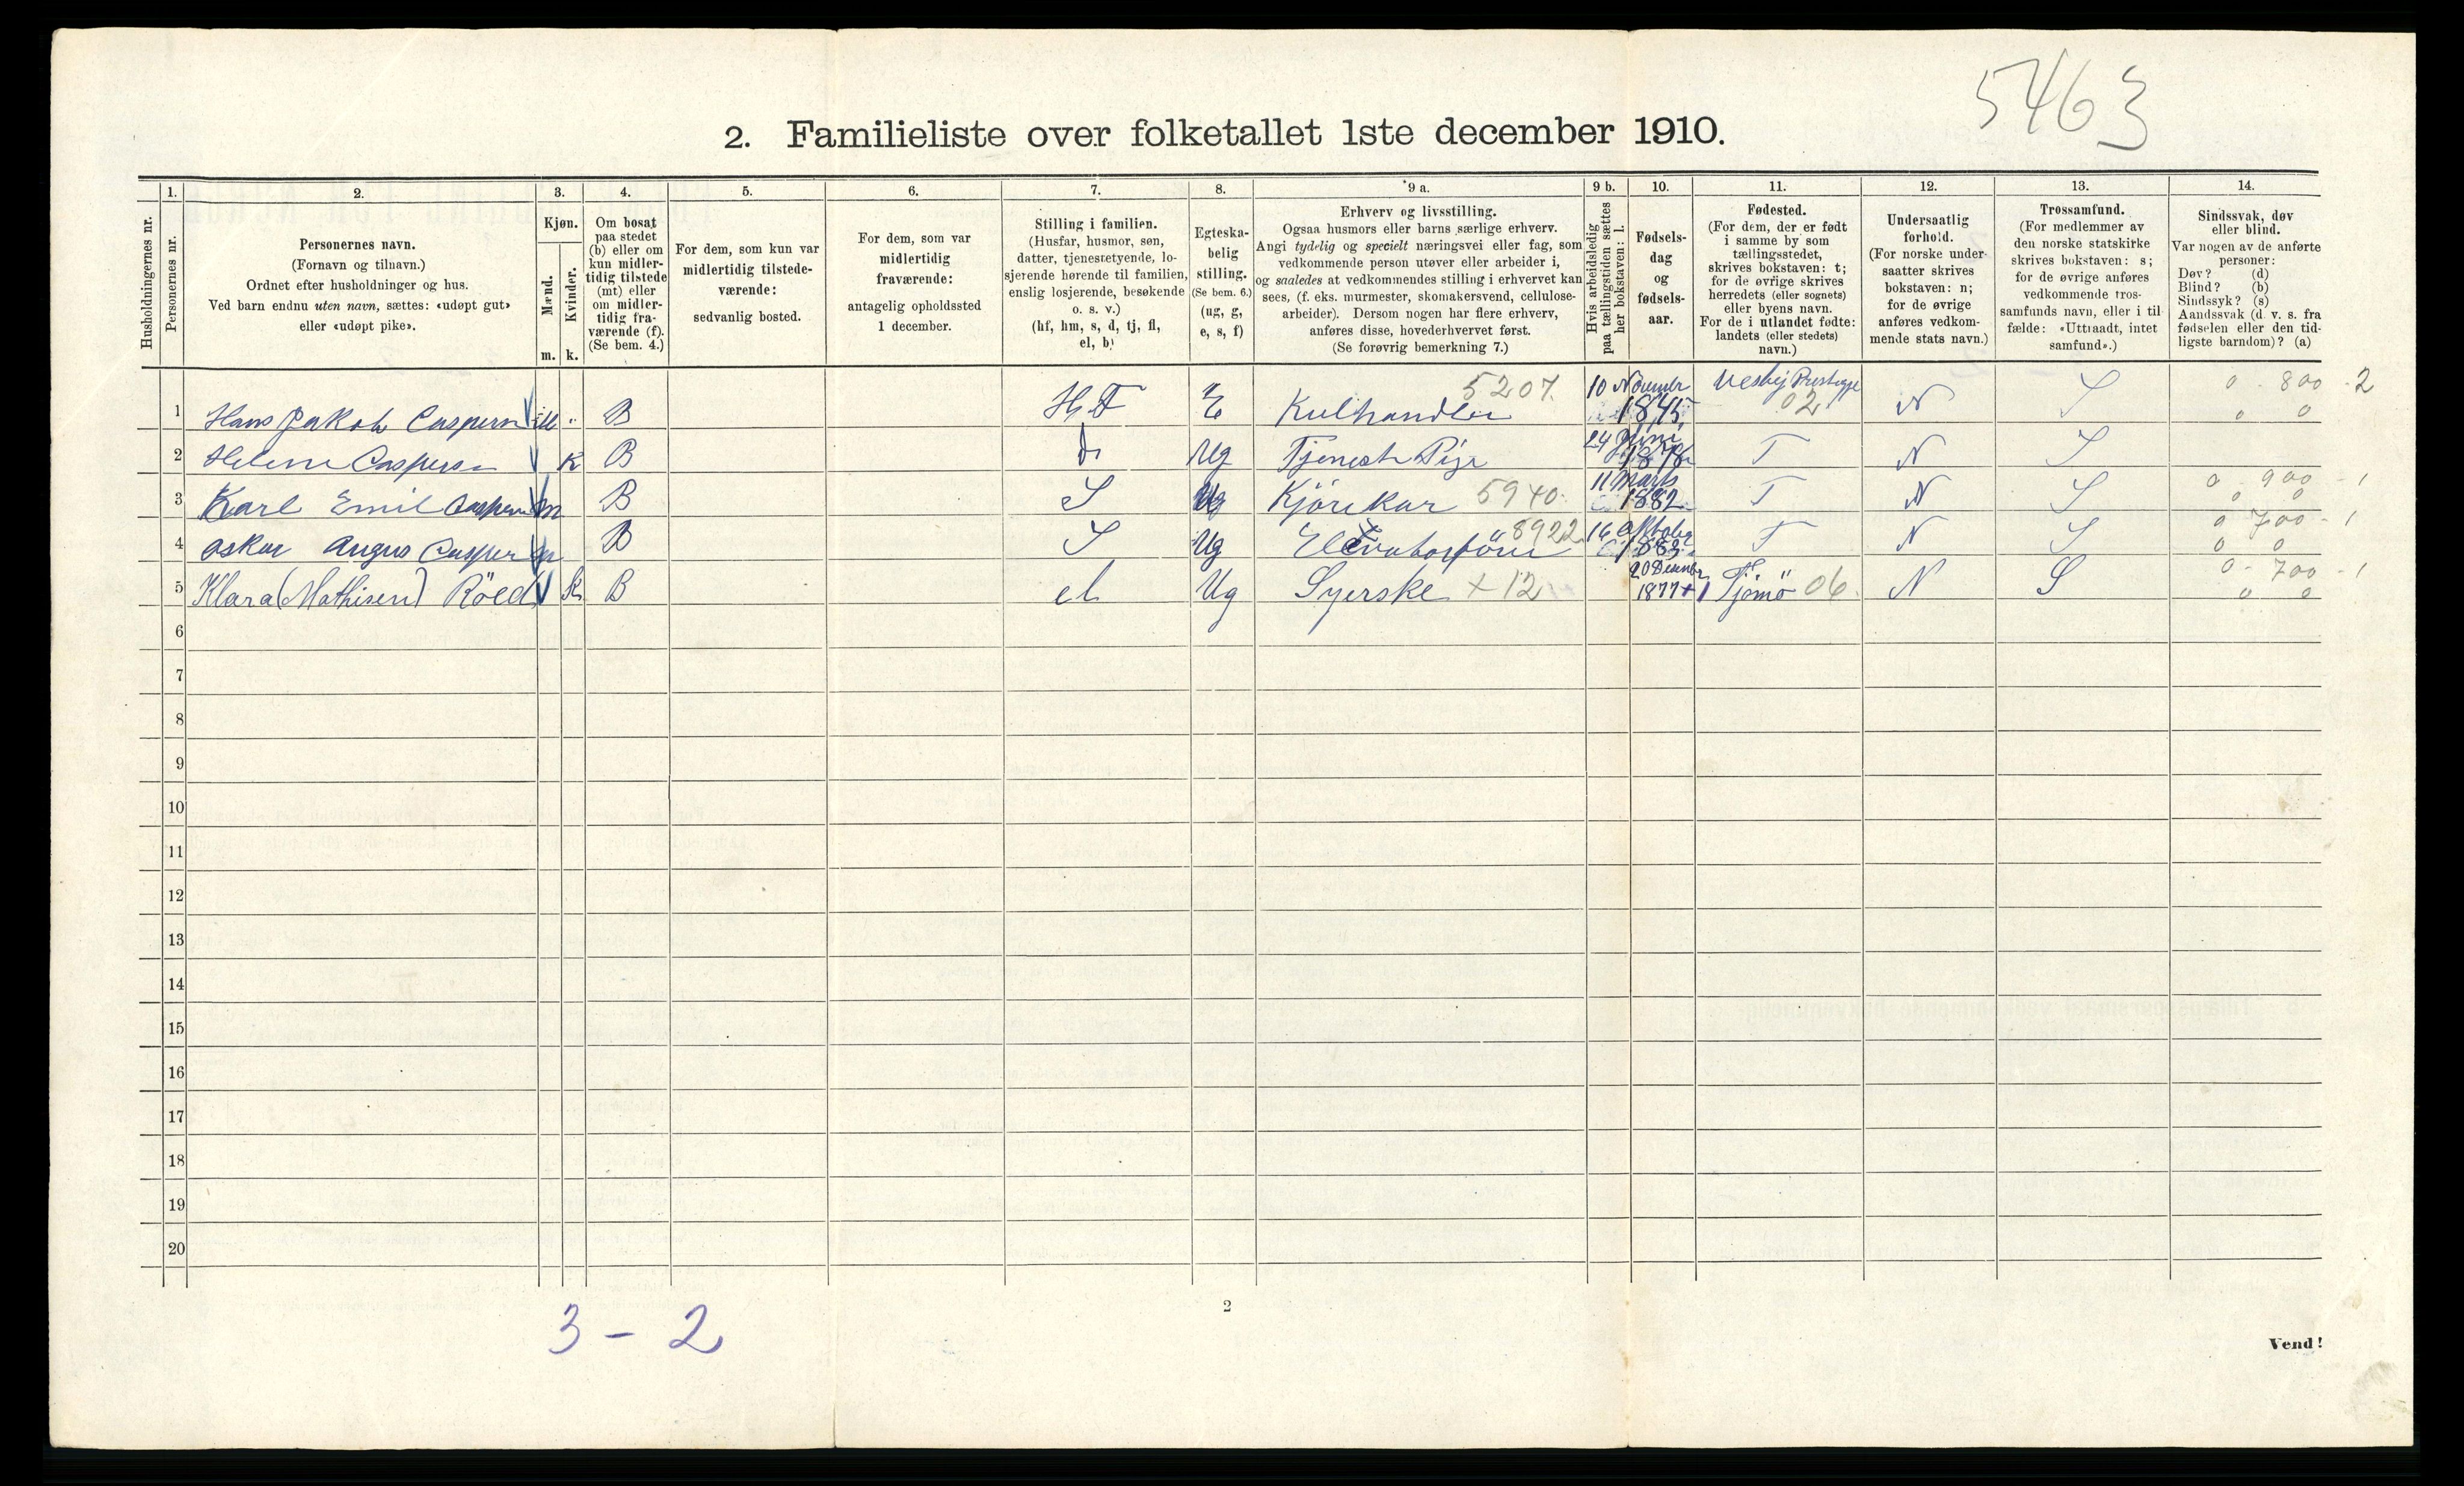 5463
2. Familieliste over folketallet 1ste december 1910.
Husholdningernes nr.
1. Personernes nr.
2. Personernes navn.
(Fornavn og tilnavn.)
Ordnet efter husholdninger og hus.
Ved barn endnu uten navn, sættes: «udøpt gut»
eller «udøpt pike».
3. Kjøn.
Mænd. m.
Kvinder. k.
4. Om bosat
paa stedet
(b) eller om
kun midler-
tidig tilstede
(mt) eller
om midler-
tidig fra-
værende (f).
(Se bem. 4.)
5. For dem, som kun var
midlertidig tilstede-
værende:
sedvanlig bosted.
6. For dem, som var
midlertidig
fraværende:
antagelig opholdssted
1 december.
7. Stilling i familien.
(Husfar, husmor, søn,
datter, tjenestetyende, lo-
sjerende hørende til familien,
enslig losjerende, besøkende
o. s. v.)
(hf, hm, s, d, tj, fl,
el, b)
8. Egteska-
belig
stilling.
(Se bem. 6.)
(ug, g,
e, s, f)
9 a. Erhverv og livsstilling.
Ogsaa husmors eller barns særlige erhverv.
Angi tydelig og specielt næringsvei eller fag, som
vedkommende person utøver eller arbeider i,
og saaledes at vedkommendes stilling i erhvervet kan
sees, (f. eks. murmester, skomakersvend, cellulose-
arbeider). Dersom nogen har flere erhverv,
anføres disse, hovederhvervet først.
(Se forøvrig bemerkning 7.)
9 b. Hvis arbeidsledig
paa tællingstiden sættes
her bokstaven: l.
10. Fødsels-
dag
og
fødsels-
aar.
11. Fødested.
(For dem, der er født
i samme by som
tællingsstedet,
skrives bokstaven: t;
for de øvrige skrives
herredets (eller sognets)
eller byens navn.
For de i utlandet fødte:
landets (eller stedets)
navn.)
12. Undersaatlig
forhold.
(For norske under-
saatter skrives
bokstaven: n;
for de øvrige
anføres vedkom-
mende stats navn.)
13. Trossamfund.
(For medlemmer av
den norske statskirke
skrives bokstaven: s;
for de øvrige anføres
vedkommende tros-
samfunds navn, eller i til-
fælde: «Uttraadt, intet
samfund».)
14. Sindssvak, døv
eller blind.
Var nogen av de anførte
personer:
Døv? (d)
Blind? (b)
Sindssyk? (s)
Aandssvak (d. v. s. fra
fødselen eller den tid-
ligste barndom)? (a)
1 Hans Jakob Caspersen m B HF E Kulhandler 5207 10 November 1845 02 N S 0 - 800 - 2 0 0
2 Helene Caspersen K B d Ug Tjeneste Pige 24 Juni T N S
3 Karl Emil Caspersen m B S Ug Kjörekar 5940 11 Marts 1882 T N S 0 - 900 - 1 0 0
4 Oskar Caspersen m B S Ug 8922 16 Oktober 1883 T N S 0 700 - 1 0 0
5 Klara (Mathisen) Röed k B el Ug Syerske + 12 20 Desember 1877 + 1 Tjömö 06 N S 0 - 700 - 1 0 0
6
7
8
9
10
11
12
13
14
15
16
17
18
19
20
3 - 2
2
Vend!